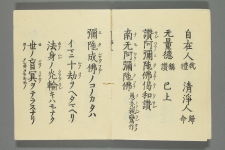 自在人 我禮 清淨人 歸命
无量德 稱讃 已上
讃阿彌陀佛偈和讃
南无阿彌陀佛 愚禿親鸞作
彌陀成佛ノコノカタハ
イマニ十劫ヲヘタマヘリ
法身ノ光輪キハモナク
世ノ盲冥ヲテラスナリ